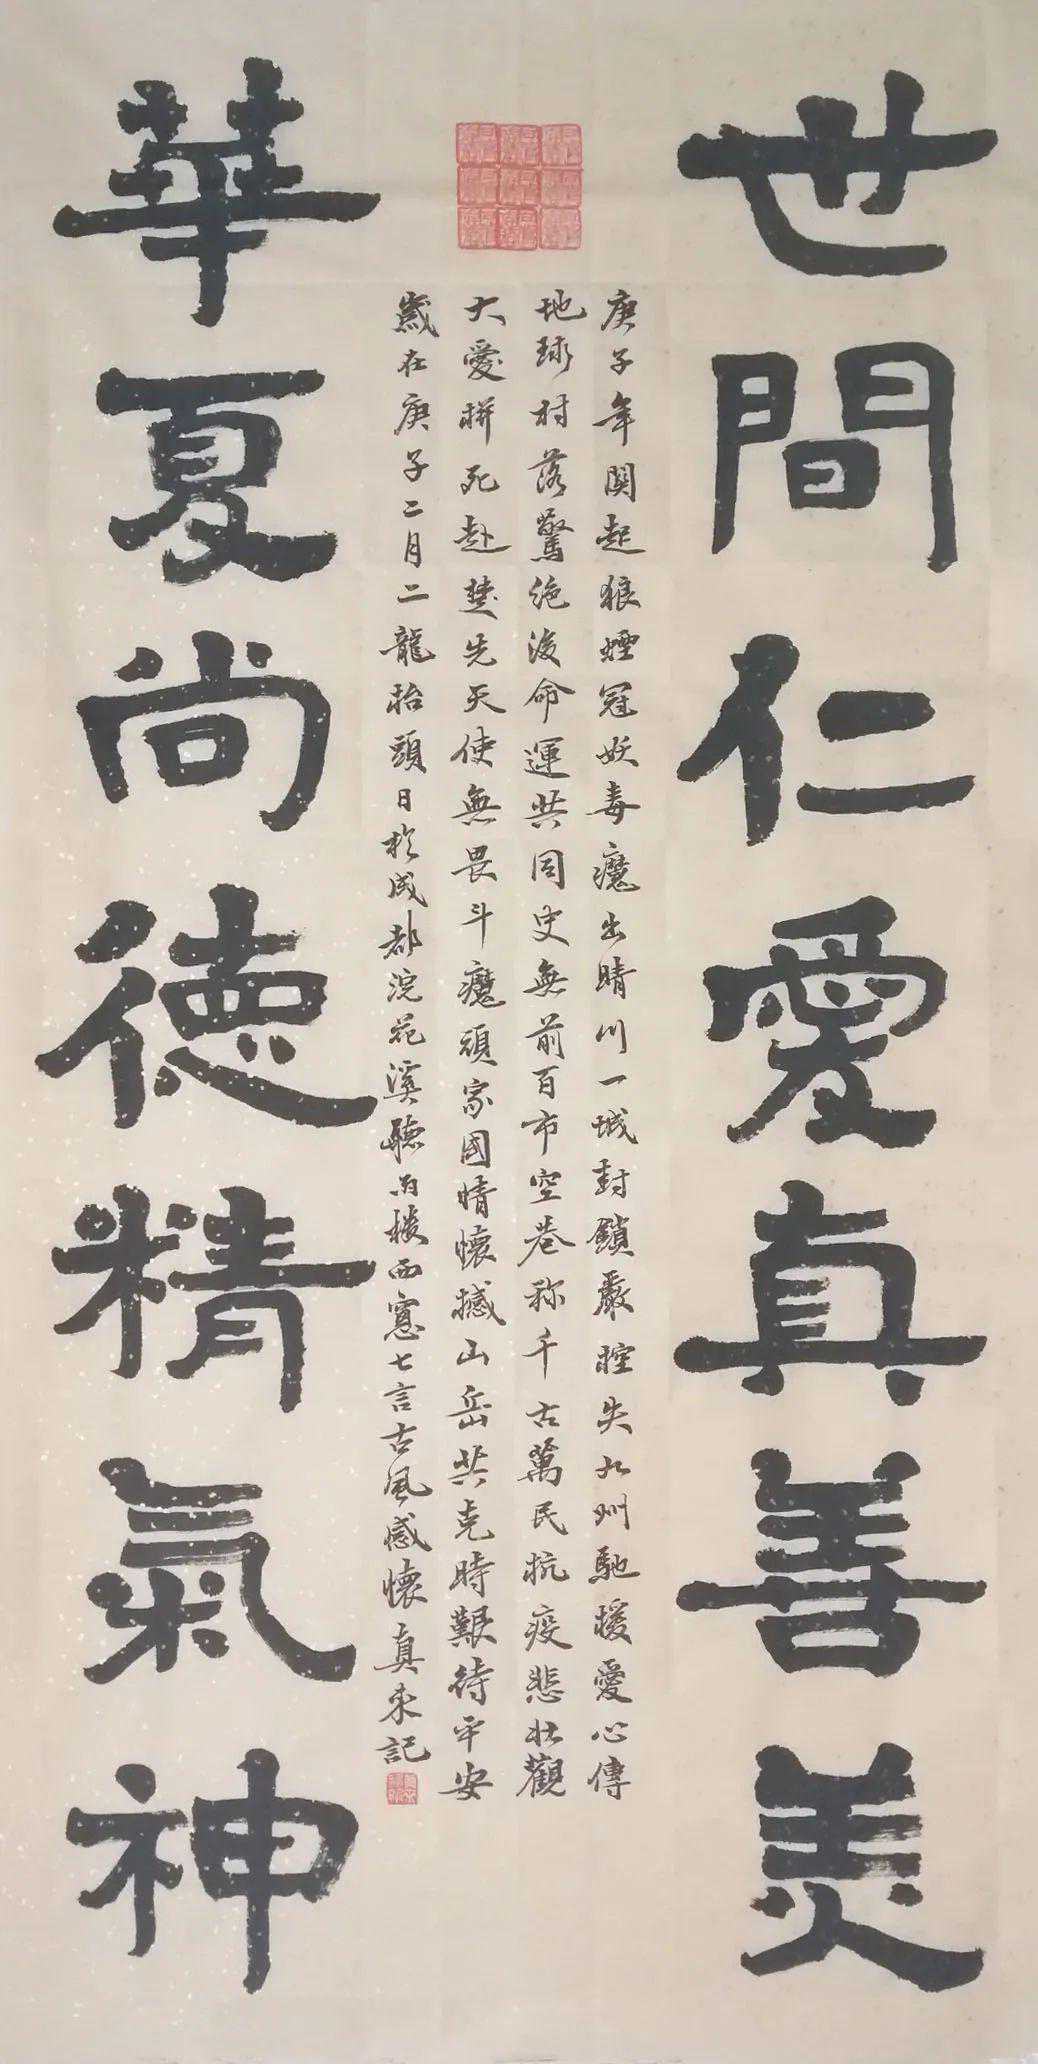 世間仁愛真善美
庚子年関起狼煙冠妖毒魔出晴川一城封鎖嚴控失九州馳援愛心傳
地球村落驚絶後命運共同史無前百市空巷称千古萬民抗疫悲壯觀
大愛拼死赴楚先天使無畏斗魔頑家國情懷撼山岳共克時艱待平安
歲在庚子二月二龍抬頭日於成都浣花溪聽雨樓西窓七言古風感懷真來記
華夏尚德精氣神